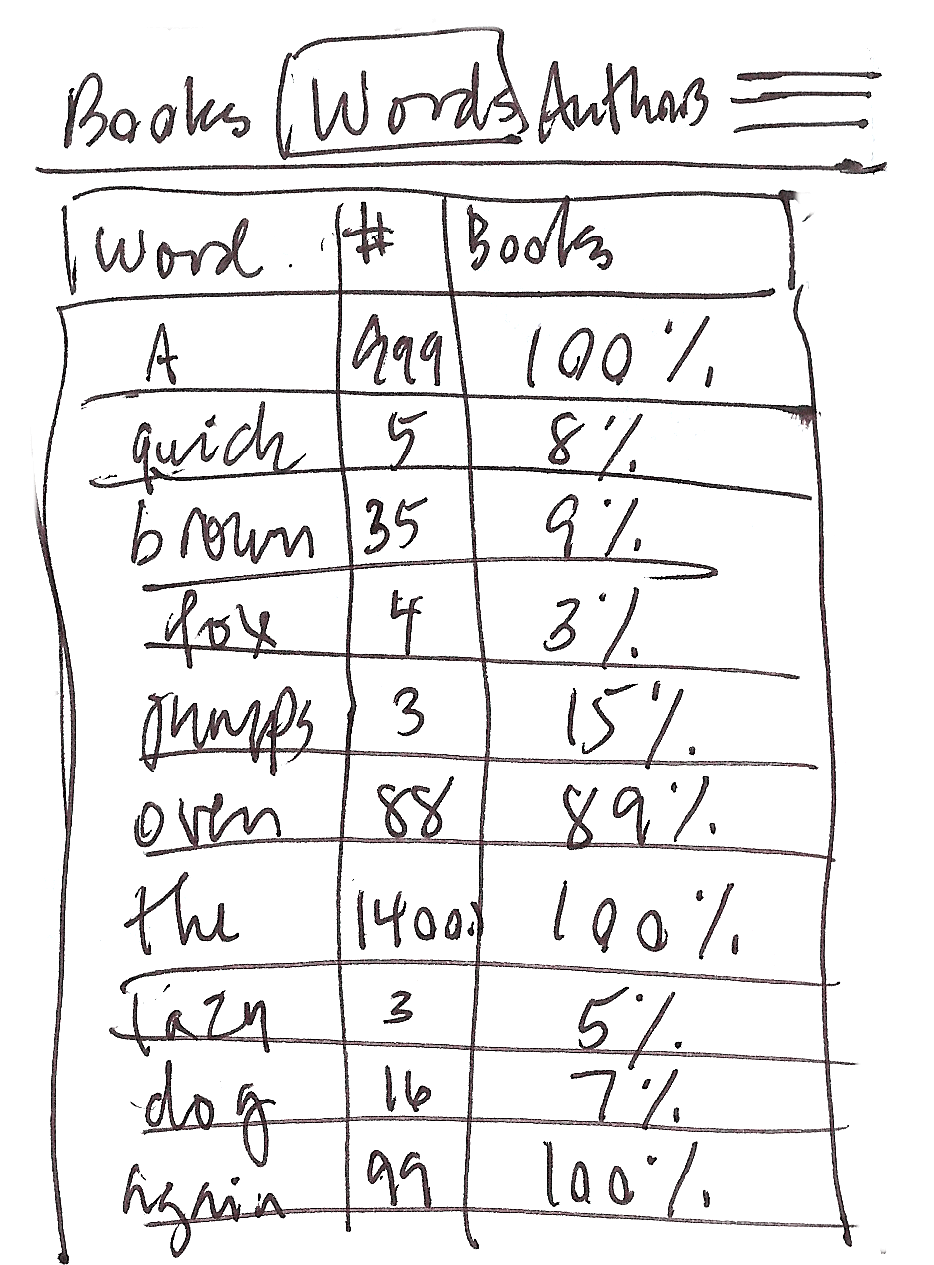 Books Words Authors
Word # Books
A 999 100%
quick 5 8%
brown 35 9%
fox 4 3%
jumps 3 15%
over 88 89%
the 1400 100%
lazy 3 5%
dog 16 7%
again 99 100%